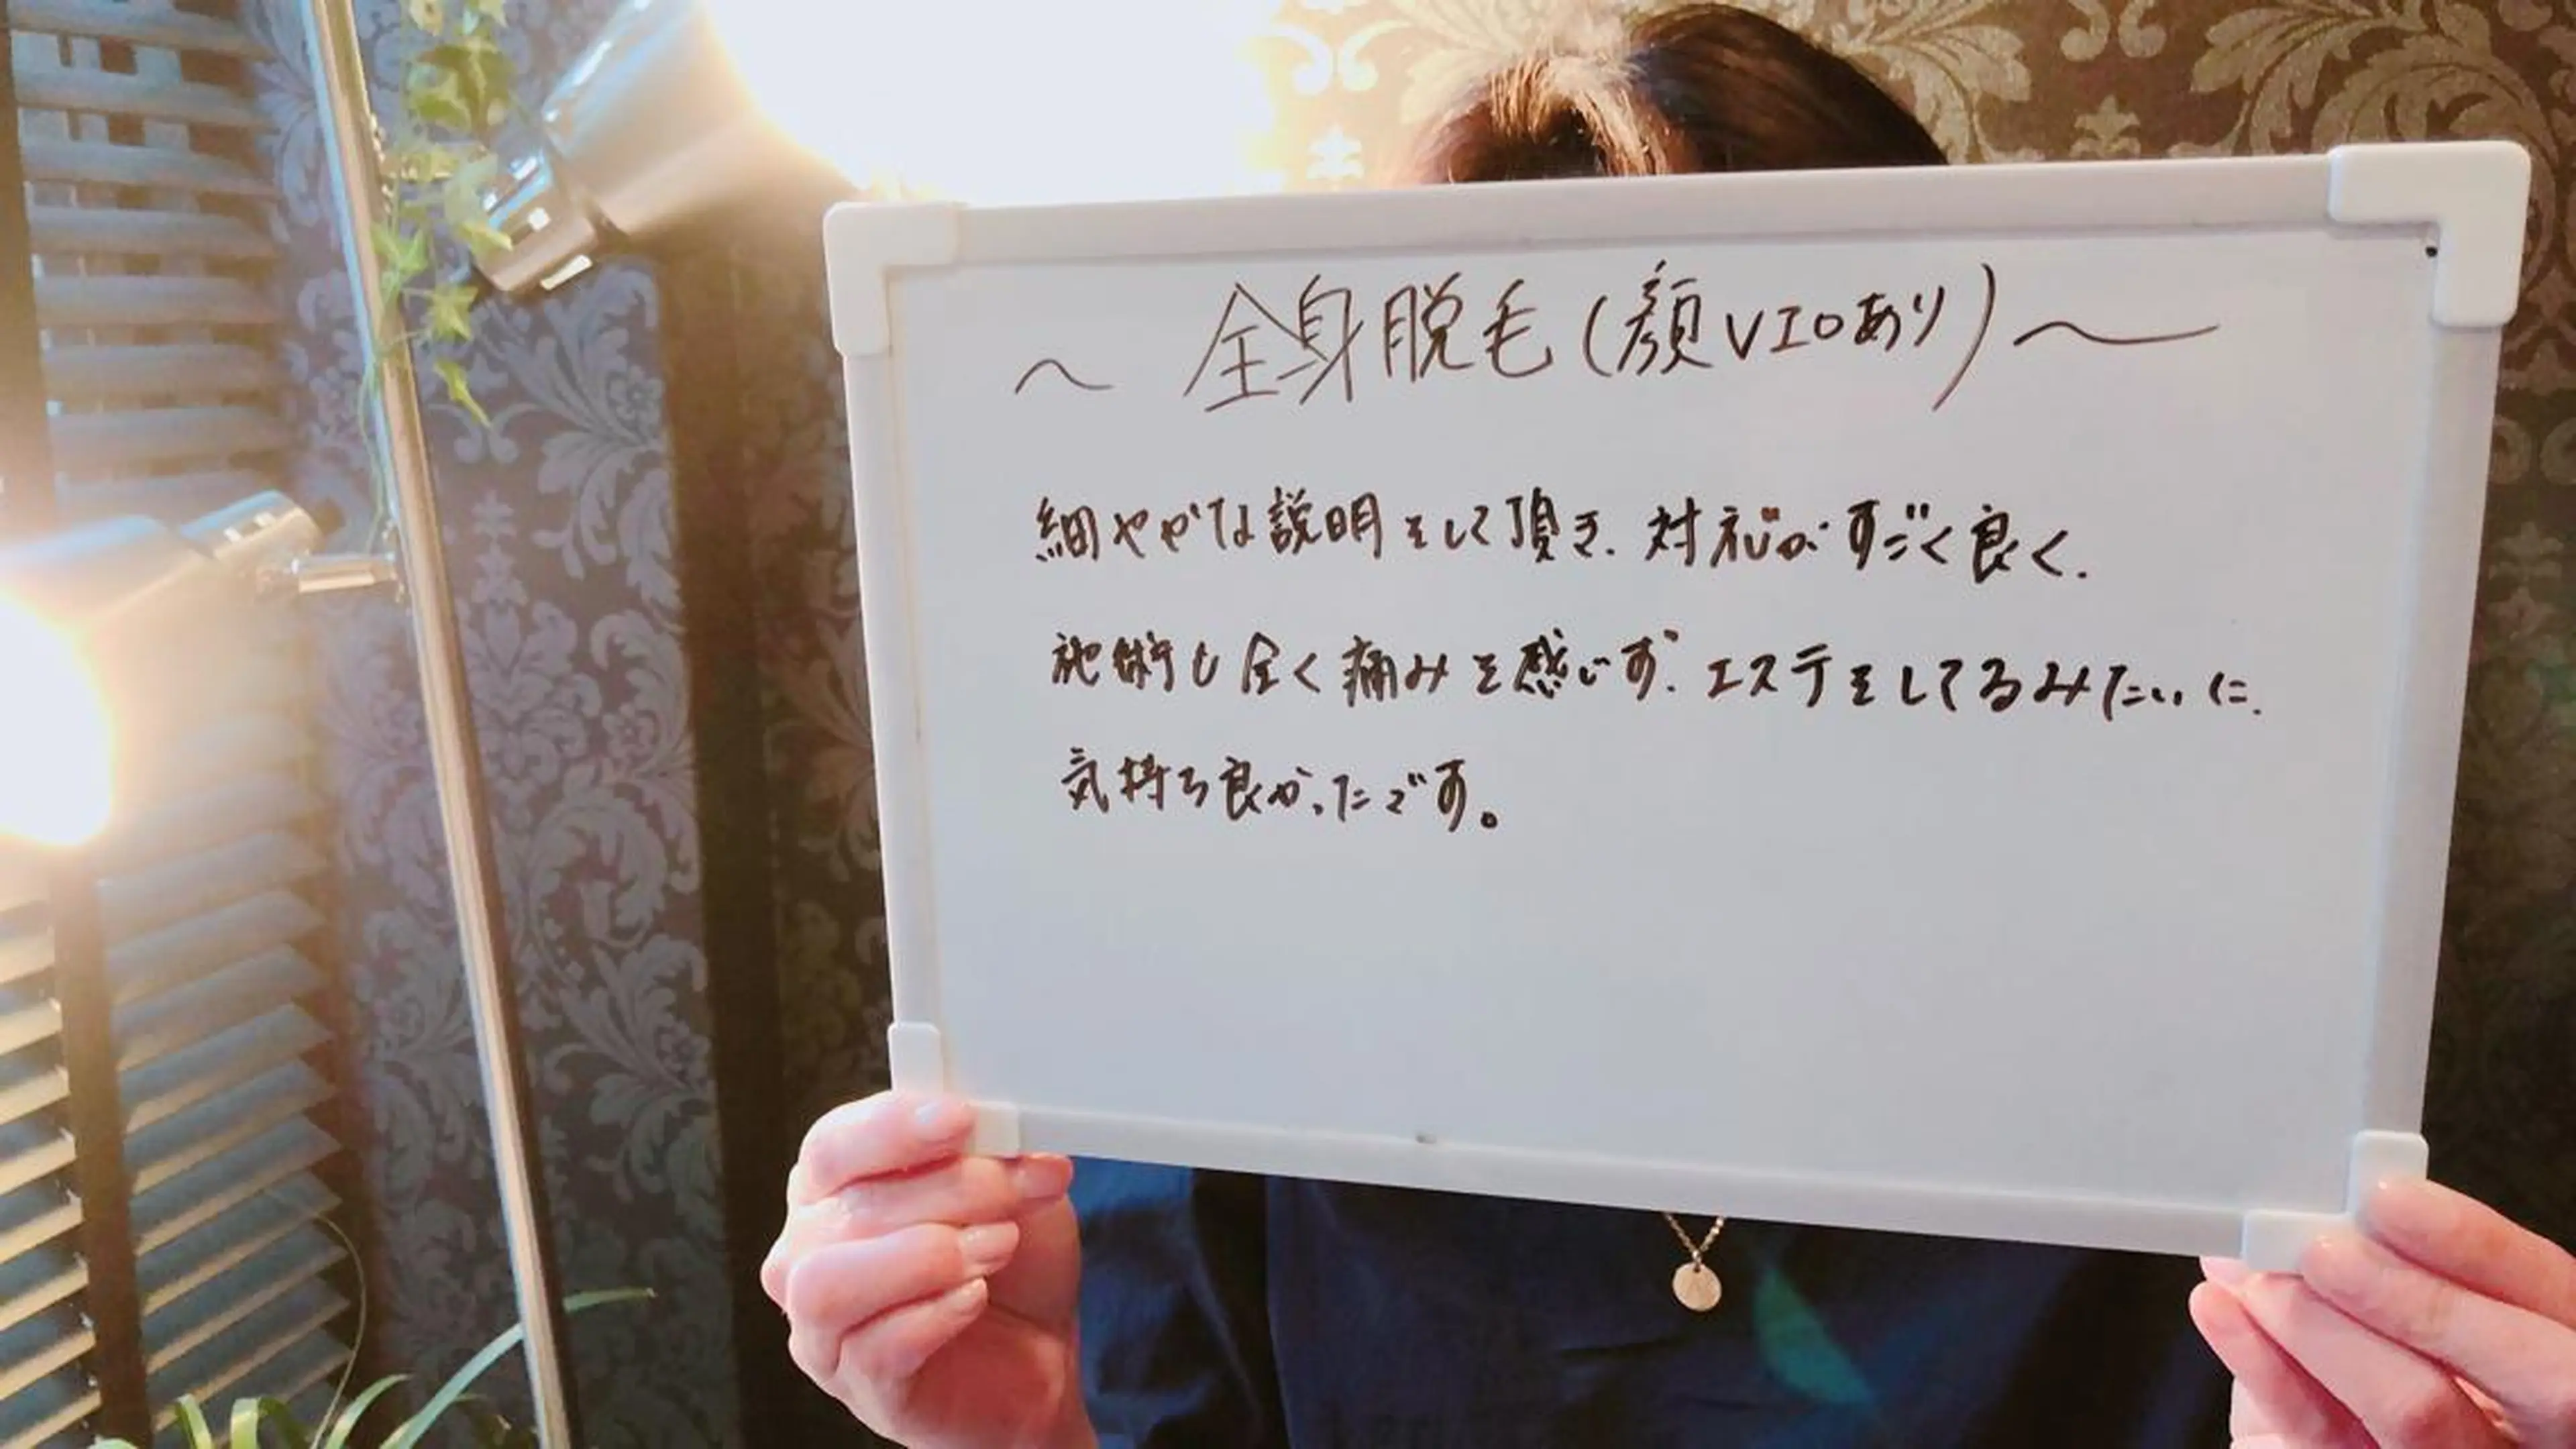 ～ 全身脱毛(顔VIOあり) ～
細やかな説明をして頂き、対応がすごく良く、
施術も全く痛みを感じず、エステをしてるみたいに、
気持ち良かったです。